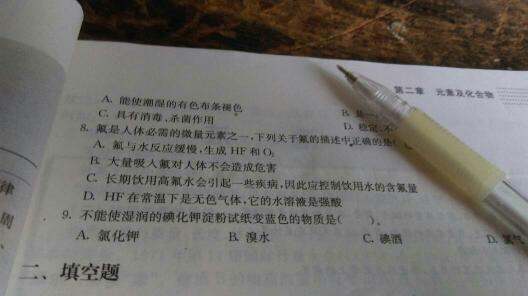 第二章 元素及化合物
A. 能使潮湿的有色布条褪色
B. 是一
C. 具有消毒、杀菌作用
D. 稳定,不
8. 氟是人体必需的微量元素之一,下列关于氟的描述中正确的是(
A. 氟与水反应缓慢,生成 HF 和 O₂
B. 大量吸入氟对人体不会造成危害
C. 长期饮用高氟水会引起一些疾病,因此应控制饮用水的含氟量
D. HF 在常温下是无色气体,它的水溶液是强酸
9. 不能使湿润的碘化钾淀粉试纸变蓝色的物质是( )。
A. 氯化钾 B. 溴水 C. 碘酒 D. 氯气
二、填空题
律
周